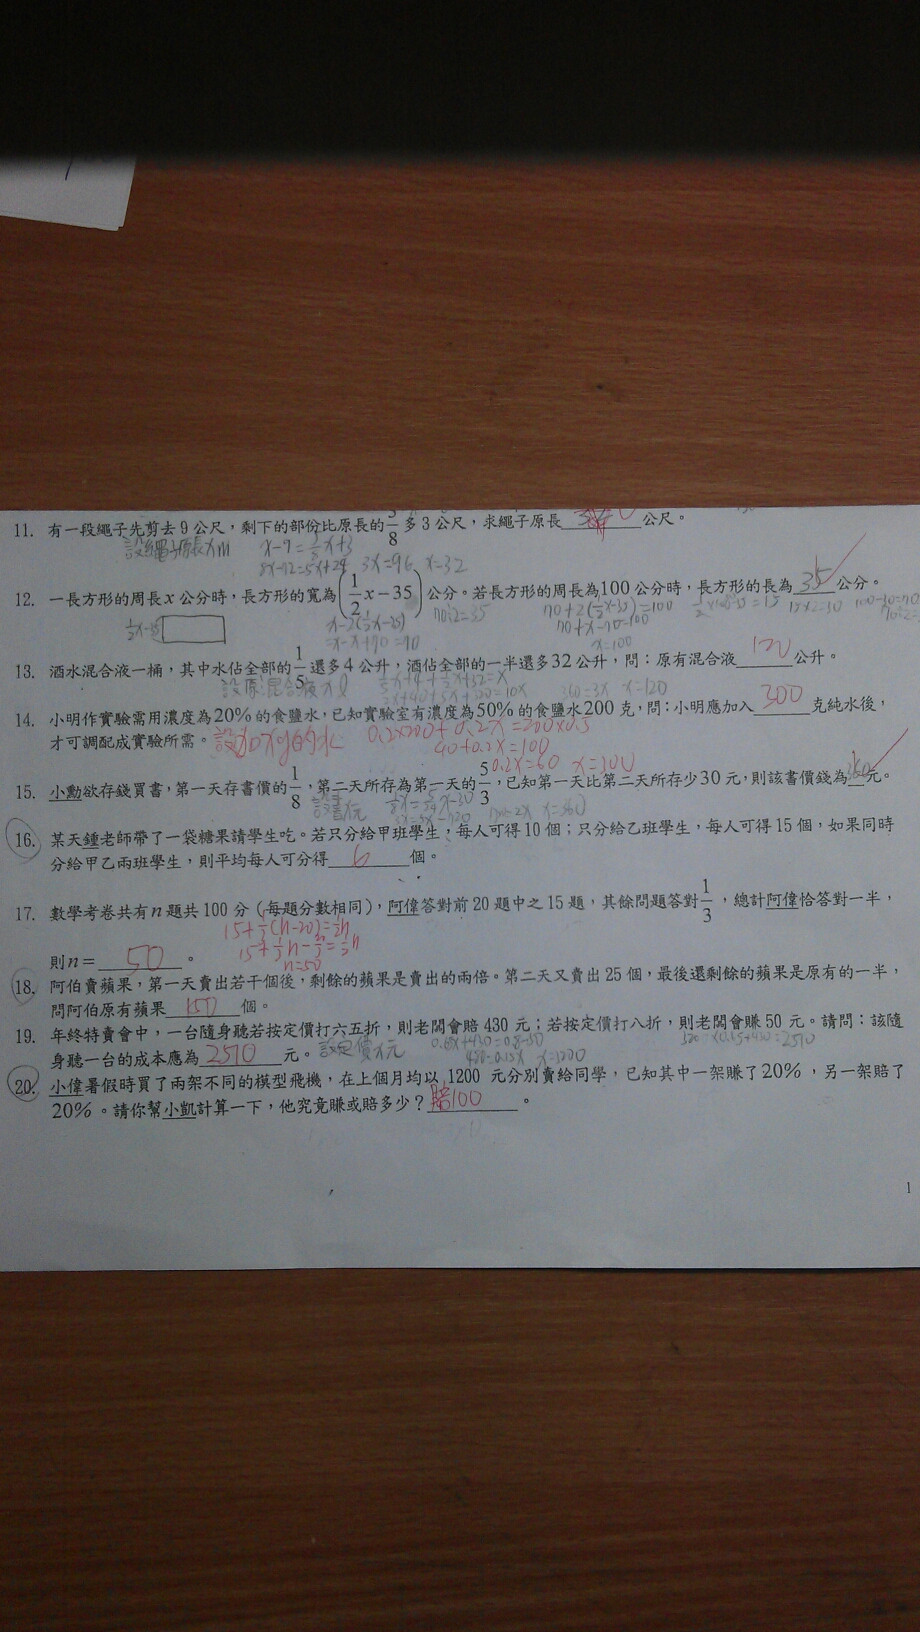 11. 有一段繩子先剪去9公尺，剩下的部份比原長的5/8多3公尺，求繩子原長______公尺。
設繩子原長xm x-9=5/8x+3
8x-72=5x+24 3x=96 x=32
12. 一長方形的周長x公分時，長方形的寬為(1/2x－35)公分。若長方形的周長為100公分時，長方形的長為35公分。
70÷2=35 70+2(1/2x-35)=100
70+x-70=100
x=100
13. 酒水混合液一桶，其中水佔全部的1/5還多4公升，酒佔全部的一半還多32公升，問：原有混合液120公升。
設原混合液xl 1/5x+4+1/2x+32=x
360=3x x=120
14. 小明作實驗需用濃度為20%的食鹽水，已知實驗室有濃度為50%的食鹽水200克，問：小明應加入300克純水後，
才可調配成實驗所需。 設加xg的水 0.2×200+0.2x=200×0.5
40+0.2x=100
0.2x=60 x=300
15. 小勳欲存錢買書，第一天存書價的1/8，第二天所存為第一天的5/3，已知第一天比第二天所存少30元，則該書價錢為360元。
設書x元
16. 某天鍾老師帶了一袋糖果請學生吃。若只分給甲班學生，每人可得10個；只分給乙班學生，每人可得15個，如果同時
分給甲乙兩班學生，則平均每人可分得6個。
17. 數學考卷共有n題共100分（每題分數相同），阿偉答對前20題中之15題，其餘問題答對1/3，總計阿偉恰答對一半，
15+1/3(n-20)=1/2n
則n＝50。
n=50
18. 阿伯賣蘋果，第一天賣出若干個後，剩餘的蘋果是賣出的兩倍。第二天又賣出25個，最後還剩餘的蘋果是原有的一半，
問阿伯原有蘋果150個。
19. 年終特賣會中，一台隨身聽若按定價打六五折，則老闆會賠430元；若按定價打八折，則老闆會賺50元。請問：該隨
身聽一台的成本應為2510元。 設定價x元
20. 小偉暑假時買了兩架不同的模型飛機，在上個月均以1200元分別賣給同學，已知其中一架賺了20%，另一架賠了
20%。請你幫小凱計算一下，他究竟賺或賠多少？賠100。
1